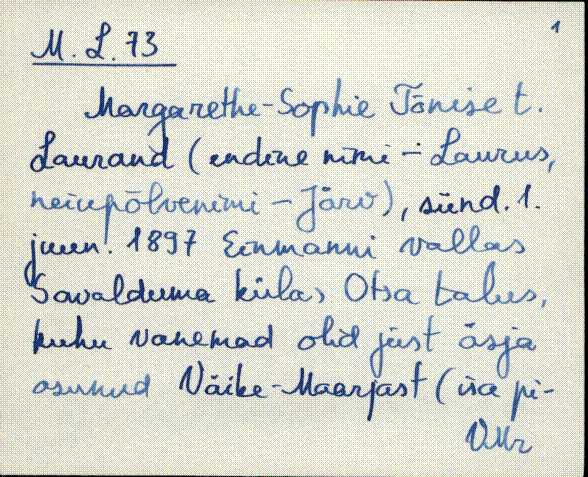 1
M. L. 73
Margarethe-Sophie Tõnise t.
Laurand (endine nimi - Laurus,
neiupõlvenimi - Järv), sünd. 1.
juun. 1897 Einmanni vallas
Savalduma külas Otsa talus,
kuhu vanemad olid just äsja
asunud Väike-Maarjast (isa pi-
VMr